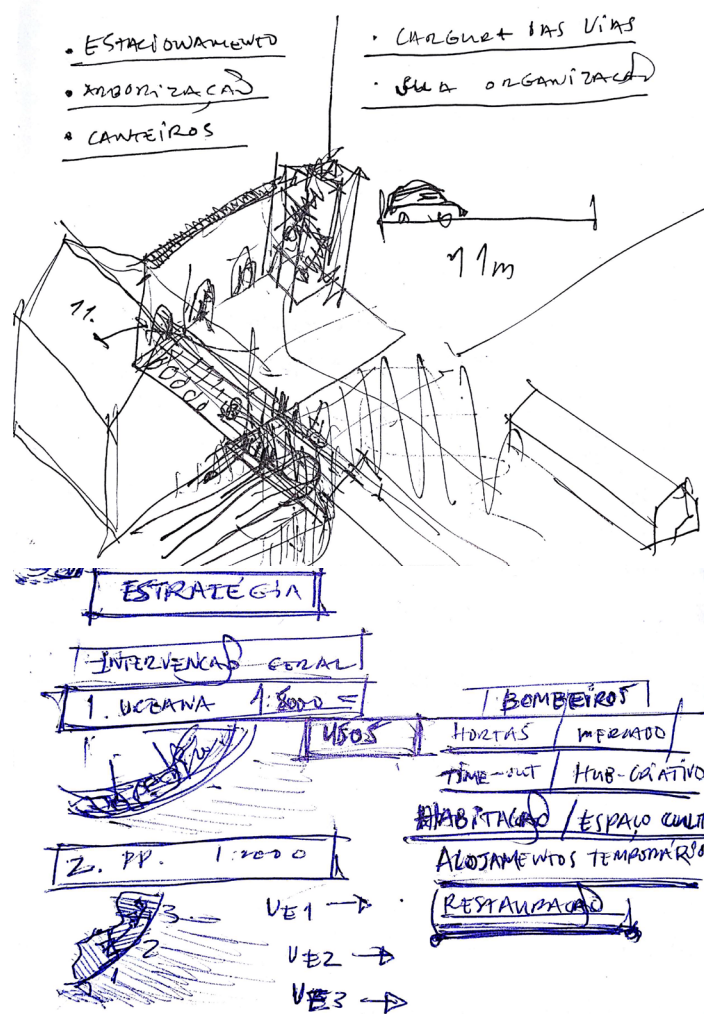 • ESTACIONAMENTO
• ARBORIZAÇÃO
• CANTEIROS
• LARGURA DAS VIAS
• SUA ORGANIZAÇÃO
11m
11.
ESTRATÉGIA
INTERVENÇÃO GERAL
1. URBANA 1:5000
USOS
BOMBEIROS
HORTAS / MERCADO
TIME-OUT / HUB-CRIATIVO
HABITAÇÃO / ESPAÇO CULT
ALOJAMENTOS TEMPORÁRIO
RESTAURAÇÃO
2. PP. 1:2000
3
2
1
UE1 →
UE2 →
UE3 →